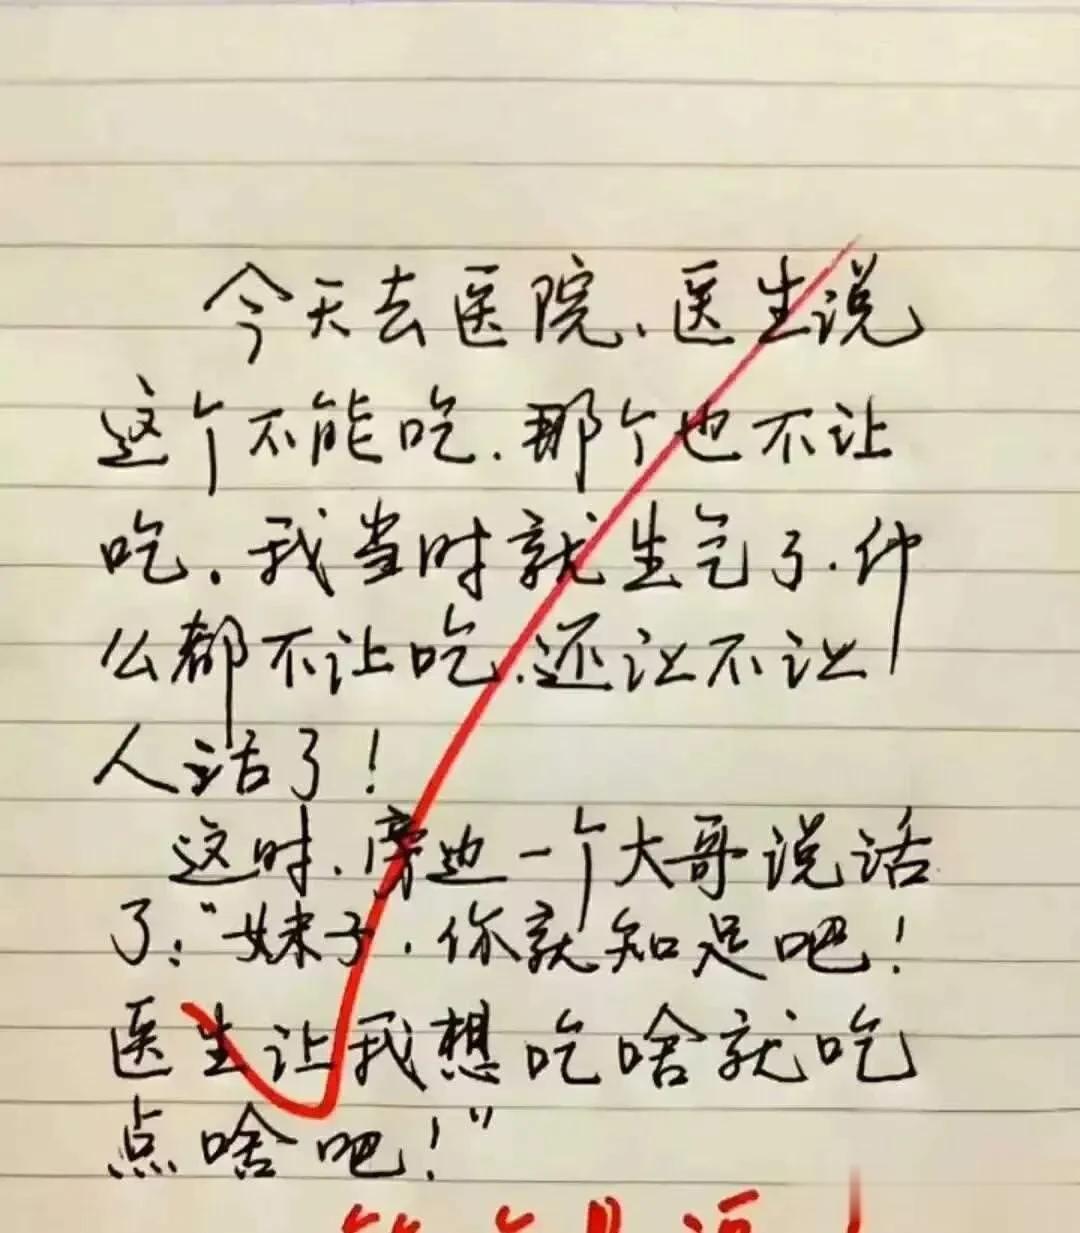 今天去医院、医生说
这个不能吃.那个也不让
吃.我当时就生气了.什
么都不让吃.还让不让
人活了!
这时、旁边一个大哥说话
了:“妹子.你就知足吧!
医生让我想吃啥就吃
点啥吧!”